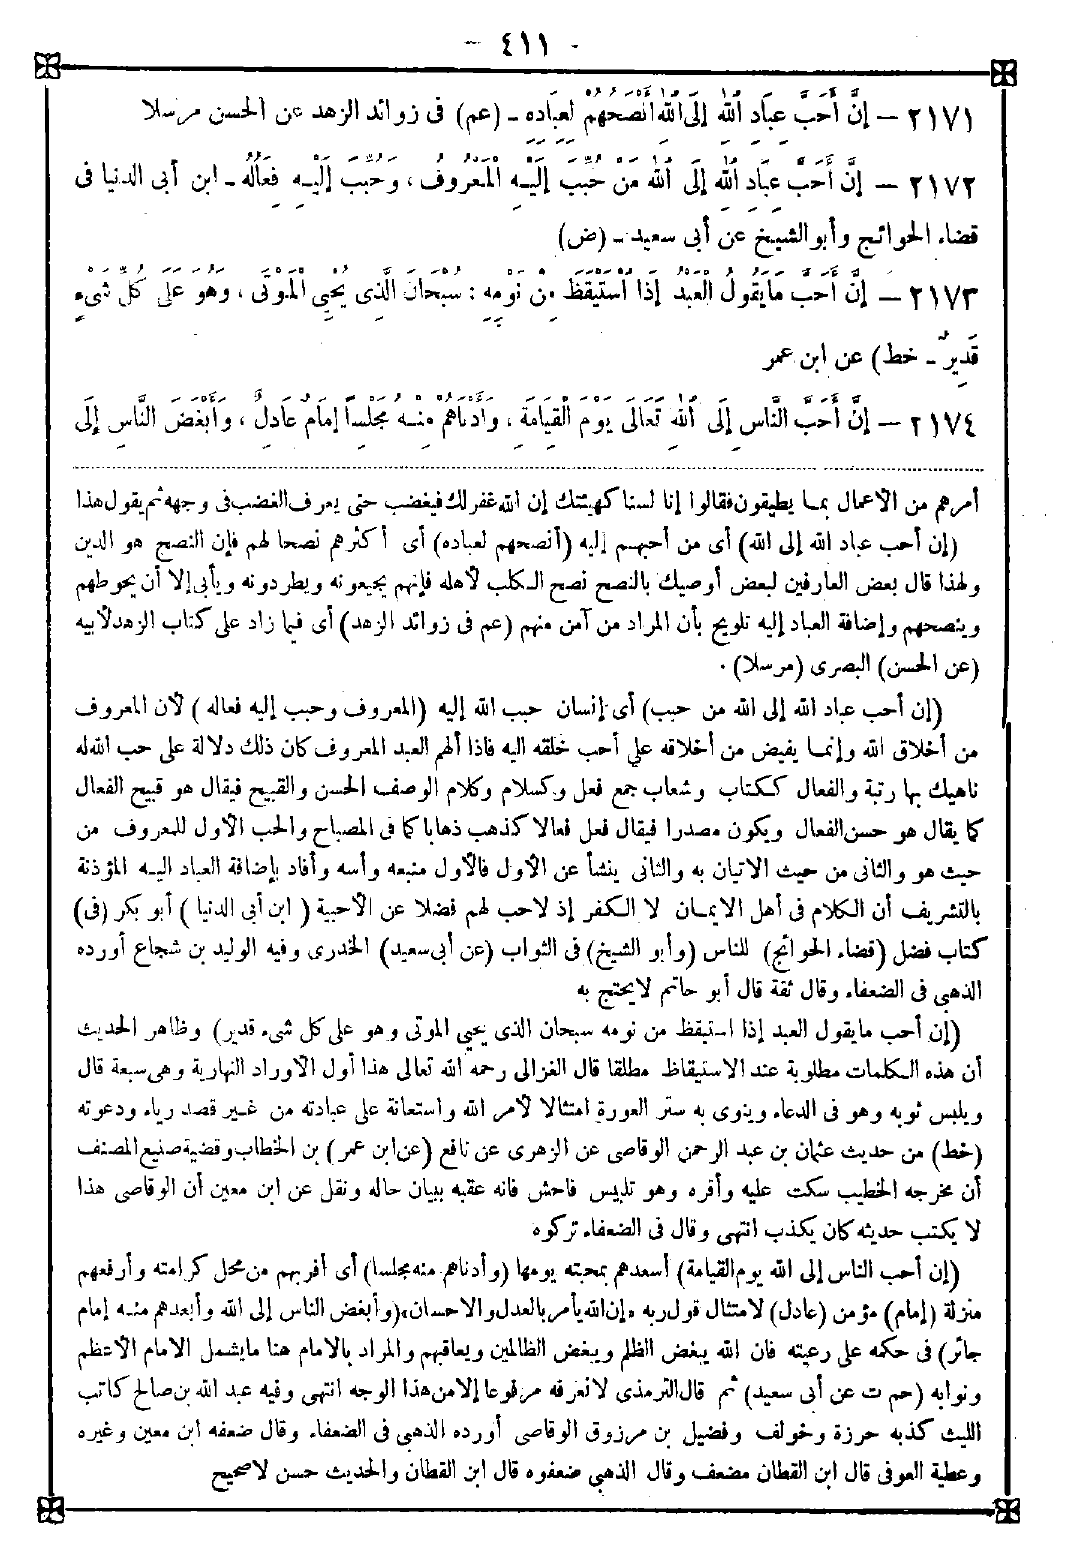 - ٤١١ -
٢١٧١ - إِنَّ أَحَبَّ عِبَادِ اللهِ إِلَى اللهِ أَنْصَحُهُمْ لِعِبَادِهِ - (عم) فى زوائد الزهد عن الحسن مرسلا
٢١٧٢ - إِنَّ أَحَبَّ عِبَادِ اللهِ إِلَى اللهِ مَنْ حُبِّبَ إِلَيْهِ الْمَعْرُوفُ، وَحُبِّبَ إِلَيْهِ فِعَالُهُ - ابن أبى الدنيا فى
قضاء الحوائج وأبو الشيخ عن أبى سعيد - (ض)
٢١٧٣ - إِنَّ أَحَبَّ مَا يَقُولُ الْعَبْدُ إِذَا اسْتَيْقَظَ مِنْ نَوْمِهِ: سُبْحَانَ الَّذِى يُحْيِى الْمَوْتَى، وَهُوَ عَلَى كُلِّ شَىْءٍ
قَدِيرٌ - خط) عن ابن عمر
٢١٧٤ - إِنَّ أَحَبَّ النَّاسِ إِلَى اللهِ تَعَالَى يَوْمَ الْقِيَامَةِ، وَأَدْنَاهُمْ مِنْهُ مَجْلِسًا إِمَامٌ عَادِلٌ، وَأَبْغَضَ النَّاسِ إِلَى
أمرهم من الأعمال بما يطيقون فقالوا إنا لسنا كهيئتك إن الله غفر لك فيغضب حتى يعرف الغضب فى وجهه ثم يقول هذا
(إن أحب عباد الله إلى الله) أى من أحبهم إليه (أنصحهم لعباده) أى أكثرهم نصحا لهم فإن النصح هو الدين
ولهذا قال بعض العارفين لبعض أوصيك بالنصح نصح الكلب لأهله فإنهم يجيعونه ويطردونه ويأبى إلا أن يحوطهم
وينصحهم وإضافة العباد إليه تلويح بأن المراد من آمن منهم (عم فى زوائد الزهد) أى فيما زاد على كتاب الزهد لأبيه
(عن الحسن) البصرى (مرسلا) .
(إن أحب عباد الله إلى الله من حبب) أى إنسان حبب الله إليه (المعروف وحبب إليه فعاله) لأن المعروف
من أخلاق الله وإنما يفيض من أخلاقه على أحب خلقه اليه فاذا ألهم العبد المعروف كان ذلك دلالة على حب الله له
ناهيك بها رتبة والفعال ككتاب وشعاب جمع فعل وكسلام وكلام الوصف الحسن والقبيح فيقال هو قبيح الفعال
كما يقال هو حسن الفعال ويكون مصدرا فيقال فعل فعالا كذهب ذهابا كما فى المصباح والحب الأول للمعروف من
حيث هو والثانى من حيث الاتيان به والثانى ينشأ عن الأول فالأول منبعه وأسه وأفاد بإضافة العباد اليه المؤذنة
بالتشريف أن الكلام فى أهل الايمان لا الكفر إذ لاحب لهم فضلا عن الأحبية (ابن أبى الدنيا) أبو بكر (فى)
كتاب فضل (قضاء الحوائج) للناس (وأبو الشيخ) فى الثواب (عن أبى سعيد) الخدرى وفيه الوليد بن شجاع أورده
الذهبى فى الضعفاء وقال ثقة قال أبو حاتم لايحتج به
(إن أحب مايقول العبد إذا استيقظ من نومه سبحان الذى يحيى الموتى وهو على كل شىء قدير) وظاهر الحديث
أن هذه الكلمات مطلوبة عند الاستيقاظ مطلقا قال الغزالى رحمه الله تعالى هذا أول الأوراد النهارية وهى سبعة قال
ويلبس ثوبه وهو فى الدعاء وينوى به ستر العورة امتثالا لأمر الله واستعانة على عبادته من غير قصد رياء ودعوته
(خط) من حديث عثمان بن عبد الرحمن الوقاصى عن الزهرى عن نافع (عن ابن عمر) بن الخطاب وقضية صنيع المصنف
أن مخرجه الخطيب سكت عليه وأقره وهو تلبيس فاحش فانه عقبه ببيان حاله ونقل عن ابن معين أن الوقاصى هذا
لا يكتب حديثه كان يكذب انتهى وقال فى الضعفاء تركوه
(إن أحب الناس إلى الله يوم القيامة) أسعدهم بمحبته يومها (وأدناهم منه مجلسا) أى أقربهم من محل كرامته وأرفعهم
منزلة (إمام) مؤمن (عادل) لامتثال قول ربه «إن الله يأمر بالعدل والاحسان» (وأبغض الناس إلى الله وأبعدهم منه إمام
جائر) فى حكمه على رعيته فان الله يبغض الظلم ويبغض الظالمين ويعاقبهم والمراد بالامام هنا مايشمل الامام الأعظم
ونوابه (حم ت عن أبى سعيد) ثم قال الترمذى لانعرفه مرفوعا إلا من هذا الوجه انتهى وفيه عبد الله بن صالح كاتب
الليث كذبه حرزة وخولف وفضيل بن مرزوق الوقاصى أورده الذهبى فى الضعفاء وقال ضعفه ابن معين وغيره
وعطية العوفى قال ابن القطان مضعف وقال الذهبى ضعفوه قال ابن القطان والحديث حسن لاصحيح